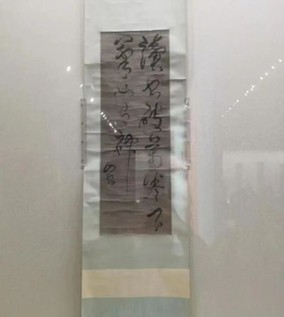 讀書破萬卷下
筆如有神